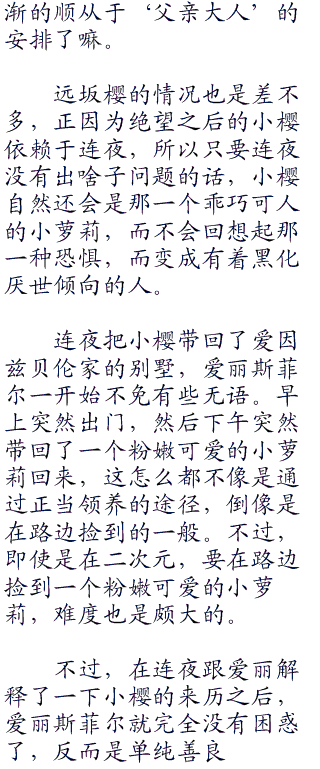 渐的顺从于‘父亲大人’的
安排了嘛。
远坂樱的情况也是差不
多，正因为绝望之后的小樱
依赖于连夜，所以只要连夜
没有出啥子问题的话，小樱
自然还会是那一个乖巧可人
的小萝莉，而不会回想起那
一种恐惧，而变成有着黑化
厌世倾向的人。
连夜把小樱带回了爱因
兹贝伦家的别墅，爱丽斯菲
尔一开始不免有些无语。早
上突然出门，然后下午突然
带回了一个粉嫩可爱的小萝
莉回来，这怎么都不像是通
过正当领养的途径，倒像是
在路边捡到的一般。不过，
即使是在二次元，要在路边
捡到一个粉嫩可爱的小萝
莉，难度也是颇大的。
不过，在连夜跟爱丽解
释了一下小樱的来历之后，
爱丽斯菲尔就完全没有困惑
了，反而是单纯善良